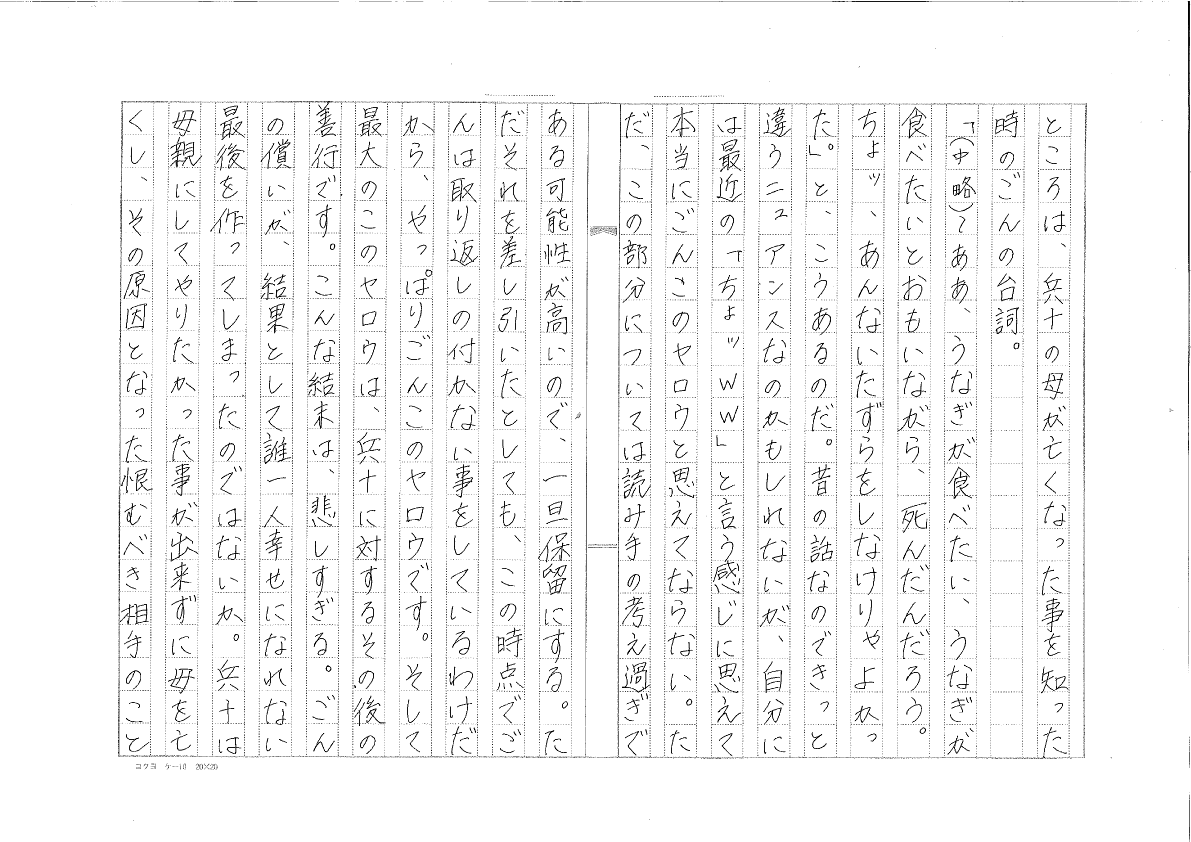 ところは、兵十の母が亡くなった事を知った
時のごんの台詞。
「(中略)てああ、うなぎが食べたい、うなぎが
食べたいとおもいながら、死んだんだろう。
ちょッ、あんないたずらをしなけりゃよかっ
た」。と、こうあるのだ。昔の話なのできっと
違うニュアンスなのかもしれないが、自分に
は最近の「ちょッｗｗ」と言う感じに思えて
本当にごんこのヤロウと思えてならない。た
だ、この部分については読み手の考え過ぎで
ある可能性が高いので、一旦保留にする。た
だそれを差し引いたとしても、この時点でご
んは取り返しの付かない事をしているわけだ
から、やっぱりごんこのヤロウです。そして
最大のこのヤロウは、兵十に対するその後の
善行です。こんな結末は、悲しすぎる。ごん
の償いが、結果として誰一人幸せになれない
最後を作ってしまったのではないか。兵十は
母親にしてやりたかった事が出来ずに母を亡
くし、その原因となった恨むべき相手のこと
コクヨ ケー10 20×20